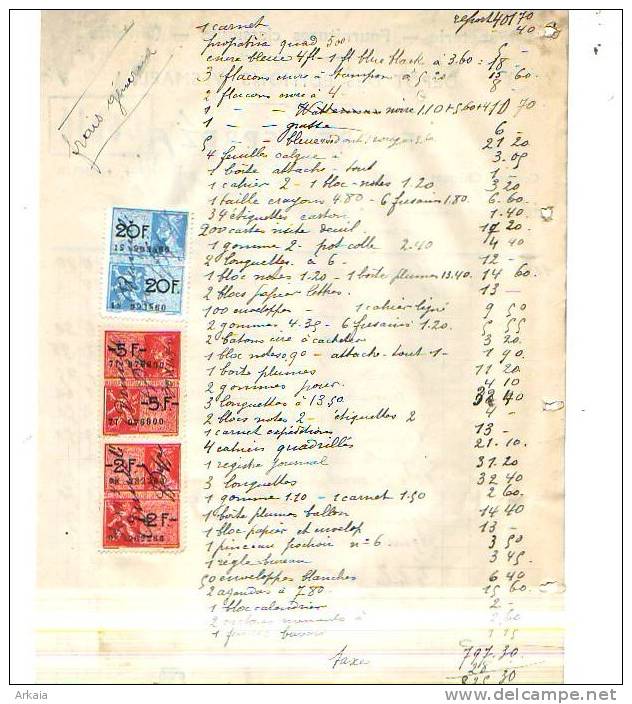 report 401 70
1 carnet 40
frais généraux
propatria quad 500 5 -
encre bleue 4 ft - 1 ft blue black à 3.60 = 18 -
3 flacons encre à tampon à 5.20 15 60
2 flacons encre à 4 8 -
1 - - noire 1.10 + 5.60 + 4 10 70
1 - gratte 6 -
5 - - bleue 21 20
4 feuilles calque à 3.05
1 boîte attache-tout 1 -
1 cahier 2 - 1 bloc-notes 1.20 3 20
1 taille crayons 4.80 - 6 fusains 1.80 6.60
34 étiquettes carton 1.40
200 cartes visite deuil 20
1 gomme 2 - pot colle 2.40 4 40
2 longuettes à 6. 12 -
1 bloc notes 1.20 - 1 boîte plumes 13.40 14 60
2 blocs papier lettres 13 -
100 enveloppes - 1 cahier ligné 9 50
2 gommes 4.35 - 6 fusains 1.20 5 55
2 batons cire à cacheter 3 20
1 bloc notes 0,90 - attache-tout 1 - 1 90
1 boîte plumes 11 20
2 gommes pour 10
3 longuettes à 13.50 40
2 blocs notes 2 - étiquettes 2 4 -
1 carnet expéditions 13 -
4 cahiers quadrillés 21.10
1 registre journal 31.20
3 longuettes 32 40
1 gomme 1.10 - 1 carnet 1.50 2 60
1 boîte plumes ballon 14 40
1 bloc papier et envelop 13 -
1 pinceau pochoir n° 6 3 50
1 règle bureau 3 45
50 enveloppes blanches 6 40
2 agendas à 7.80 15 60
1 bloc calendrier 2 -
2 à 2.60
1 1 15
797.30
Taxes 28
825 30
20F.
15 593560
20F.
15 593560
-5F-
77 076800
-5F-
77 076800
-2F-
-2F-
Arkaia
www.delcampe.net